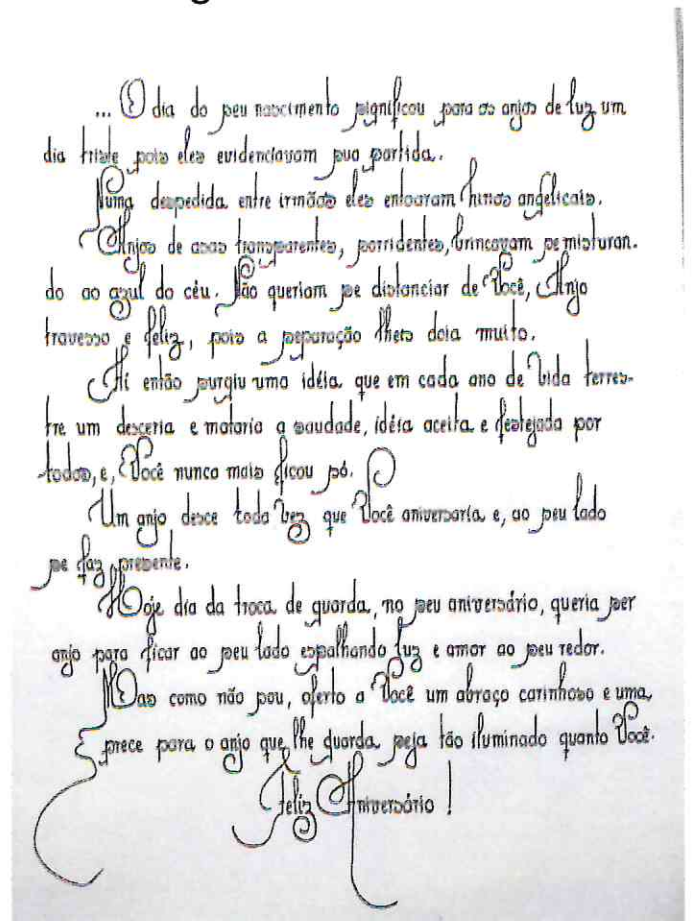 ... O dia do seu nascimento significou para os anjos de luz um
dia triste pois eles evidenciavam sua partida.
Numa despedida entre irmãos eles entoaram hinos angelicais.
Anjos de asas transparentes, sorridentes, brincavam se misturan.
do ao azul do céu. Não queriam se distanciar de Você, Anjo
travesso e feliz, pois a separação lhes doia muito.
Aí então surgiu uma idéia, que em cada ano de vida terres-
tre um desceria e mataria a saudade, idéia aceita e festejada por
todos, e, Você nunca mais ficou só.
Um anjo desce toda vez que Você aniversaria e, ao seu lado
se faz presente.
Hoje dia da troca de guarda, no seu aniversário, queria ser
anjo para ficar ao seu lado espalhando luz e amor ao seu redor.
Mas como não sou, oferto a Você um abraço carinhoso e uma
prece para o anjo que lhe guarda seja tão iluminado quanto Você.
Feliz Aniversário !